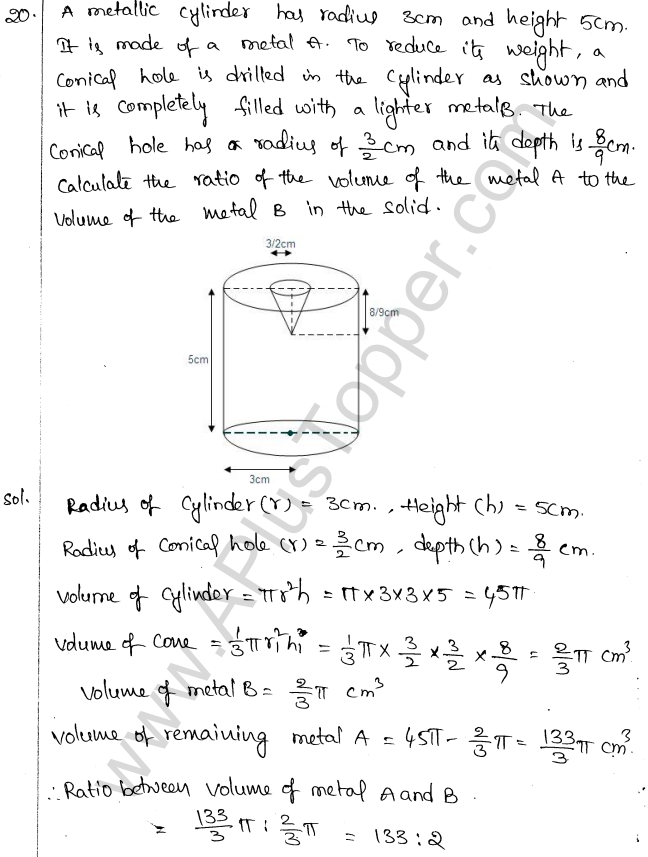 20. A metallic cylinder has radius 3cm and height 5cm.
It is made of a metal A. To reduce its weight, a
conical hole is drilled in the cylinder as shown and
it is completely filled with a lighter metal B. The
conical hole has a radius of 3/2 cm and its depth is 8/9 cm.
Calculate the ratio of the volume of the metal A to the
volume of the metal B in the solid.
3/2cm
8/9cm
5cm
3cm
Sol. Radius of cylinder (r) = 3cm., Height (h) = 5cm.
Radius of conical hole (r) = 3/2 cm, depth (h) = 8/9 cm.
Volume of cylinder = πr²h = π×3×3×5 = 45π
Volume of cone = 1/3 πr₁²h₁ = 1/3 π × 3/2 × 3/2 × 8/9 = 2/3 π cm³
Volume of metal B = 2/3 π cm³
Volume of remaining metal A = 45π - 2/3 π = 133/3 π cm³
∴ Ratio between volume of metal A and B.
= 133/3 π : 2/3 π = 133 : 2
www.APlusTopper.com